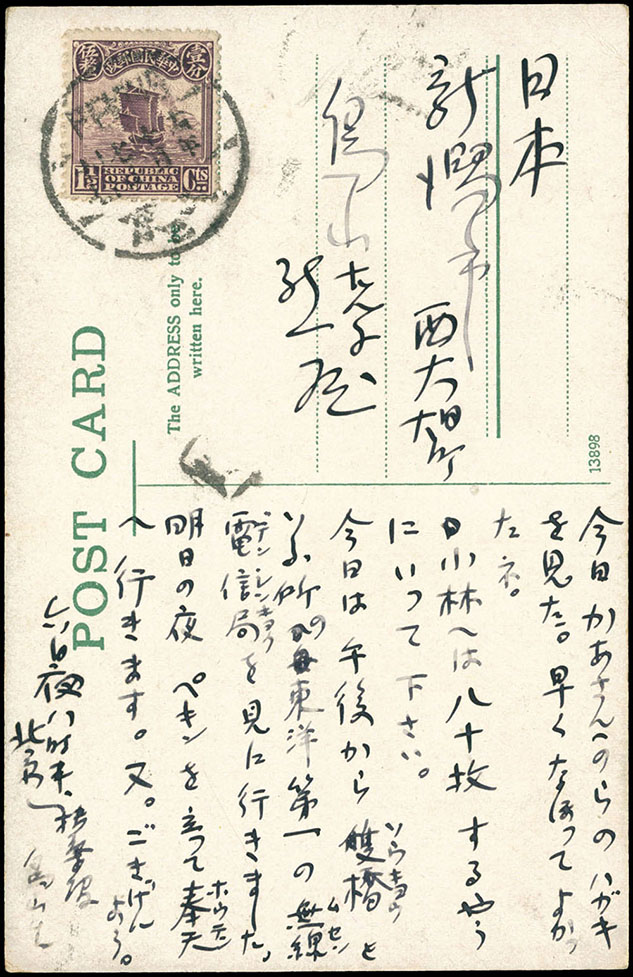 中華民國郵政
壹分
伍釐
REPUBLIC
OF CHINA
POSTAGE
1½
Cts
POST CARD
The ADDRESS only to be
written here.
13898
日本
新潟市
西大畑町
今日かあさんへのらのハガキ
を見た。早くなほってよかっ
たネ。
小林へは八十枚するやう
にいって下さい。
今日は午後から雙橋と
ソウキョウ
所の東洋第一の無線
ムセン
電信局を見に行きました。
デンシンキョク
明日の夜ペキンを立って奉天
ホウテン
へ行きます。又。ごきげん
よう。
六日夜八時半、
北京